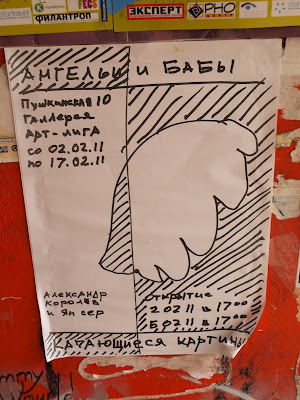 FEGS
ФИЛАНТРОП
ЭКСПЕРТ
РНО
АНГЕЛЫ И БАБЫ
Пушкинская 10
Галлерея
Арт-лига
со 02.02.11
по 17.02.11
Александр
Королёв
и Ян Сер
Открытие
2 02 11 в 17 00
5 02 11 в 17 00
Качающиеся картины